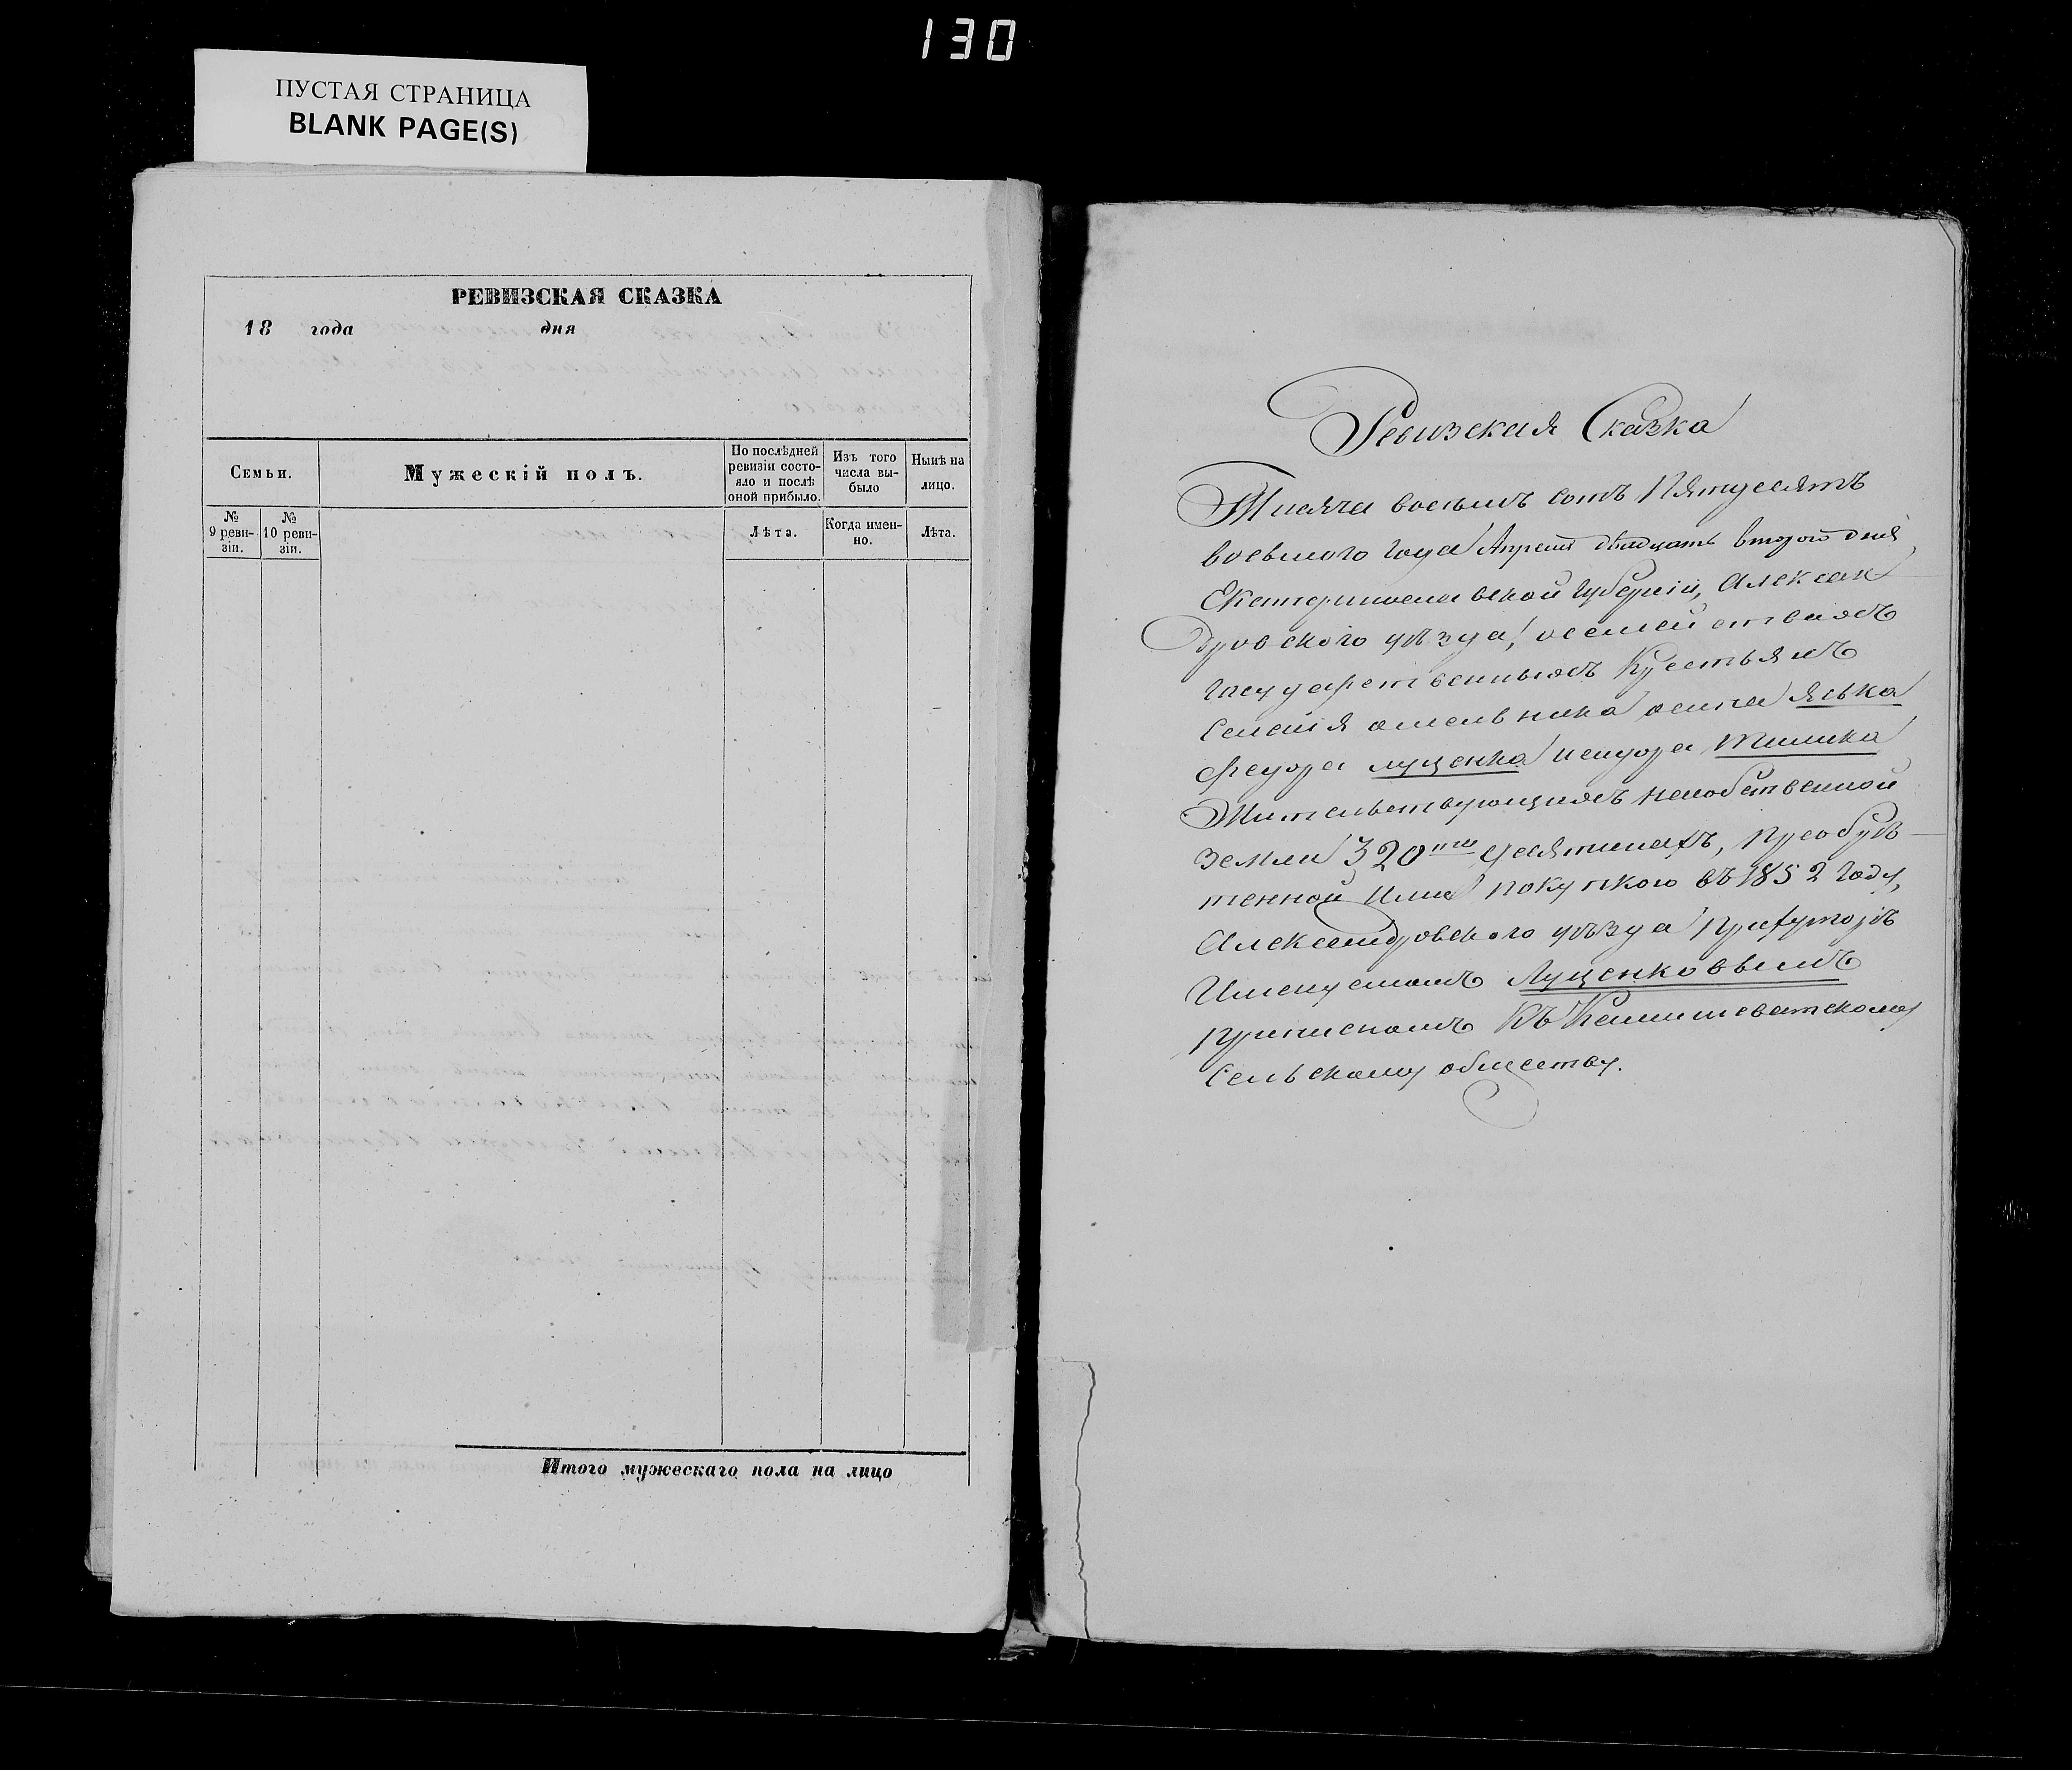 130
ПУСТАЯ СТРАНИЦА
BLANK PAGE(S)
РЕВИЗСКАЯ СКАЗКА
18 года дня
Семьи.
Мужескій полъ.
По послѣдней ревизіи состояло и послѣ оной прибыло.
Изъ того числа выбыло
Нынѣ на лицо.
№ 9 ревизіи.
№ 10 ревизіи.
Лѣта.
Когда именно.
Лѣта.
Итого мужескаго пола на лицо
Ревизская Сказка
Тисяча восемь сотъ Пятдесятъ
восьмого года Апреля двадцать второго дня,
Екатеринославской губерніи, Алексан
дровского уѣзда, о семействахъ
государственныхъ Крестьянъ
Семена омельника осипа яська
федора луценка исидора тимика
Жительствующихъ насобственной
земли 320ти десятинахъ, преобрѣ
тенной Ими покупкою въ 1852 году,
Александровского уѣзда при хуторѣ
Именуемомъ Луценковымъ
приписномъ Къ Камишеватскому
Сельскому обществу.